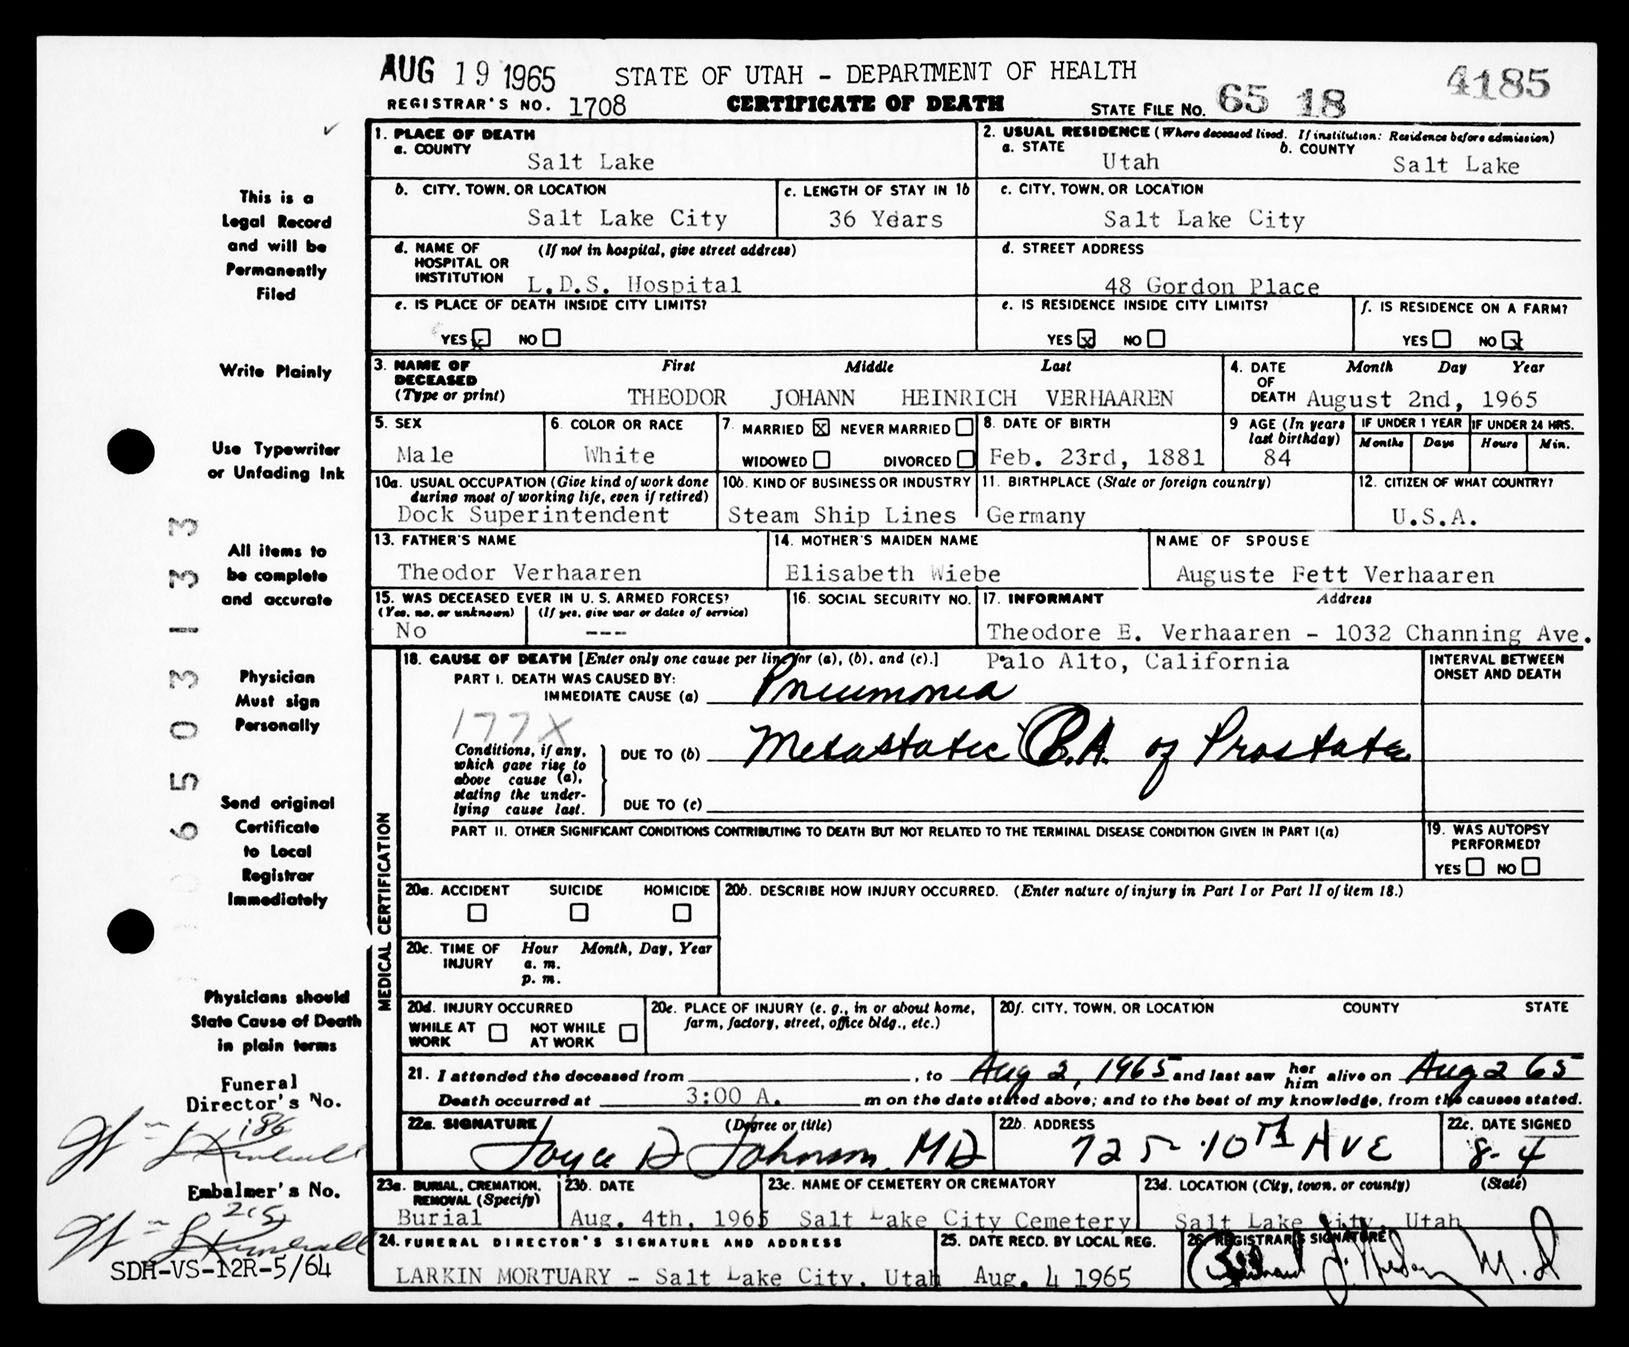 AUG 19 1965 STATE OF UTAH - DEPARTMENT OF HEALTH 4185
REGISTRAR'S NO. 1708 CERTIFICATE OF DEATH STATE FILE NO. 65 18
1. PLACE OF DEATH
a. COUNTY
Salt Lake
2. USUAL RESIDENCE (Where deceased lived. If institution: Residence before admission)
a. STATE b. COUNTY
Utah Salt Lake
b. CITY, TOWN, OR LOCATION
Salt Lake City
c. LENGTH OF STAY IN 1b
36 Years
c. CITY, TOWN, OR LOCATION
Salt Lake City
d. NAME OF (If not in hospital, give street address)
HOSPITAL OR
INSTITUTION L.D.S. Hospital
d. STREET ADDRESS
48 Gordon Place
e. IS PLACE OF DEATH INSIDE CITY LIMITS?
YES x NO
e. IS RESIDENCE INSIDE CITY LIMITS?
YES x NO
f. IS RESIDENCE ON A FARM?
YES NO x
3. NAME OF First Middle Last
DECEASED
(Type or print) THEODOR JOHANN HEINRICH VERHAAREN
4. DATE Month Day Year
OF
DEATH August 2nd, 1965
5. SEX
Male
6. COLOR OR RACE
White
7. MARRIED x NEVER MARRIED
WIDOWED DIVORCED
8. DATE OF BIRTH
Feb. 23rd, 1881
9 AGE (In years
last birthday)
84
IF UNDER 1 YEAR IF UNDER 24 HRS.
Months Days Hours Min.
10a. USUAL OCCUPATION (Give kind of work done
during most of working life, even if retired)
Dock Superintendent
10b. KIND OF BUSINESS OR INDUSTRY
Steam Ship Lines
11. BIRTHPLACE (State or foreign country)
Germany
12. CITIZEN OF WHAT COUNTRY?
U.S.A.
13. FATHER'S NAME
Theodor Verhaaren
14. MOTHER'S MAIDEN NAME
Elisabeth Wiebe
NAME OF SPOUSE
Auguste Fett Verhaaren
15. WAS DECEASED EVER IN U.S. ARMED FORCES?
(Yes, no, or unknown) (If yes, give war or dates of service)
No ---
16. SOCIAL SECURITY NO.
17. INFORMANT Address
Theodore E. Verhaaren - 1032 Channing Ave.
Palo Alto, California
MEDICAL CERTIFICATION
18. CAUSE OF DEATH [Enter only one cause per line for (a), (b), and (c).]
PART I. DEATH WAS CAUSED BY:
IMMEDIATE CAUSE (a) Pneumonia
177X
Conditions, if any,
which gave rise to
above cause (a),
stating the under-
lying cause last.
DUE TO (b) Metastatic C.A. of Prostate
DUE TO (c)
INTERVAL BETWEEN
ONSET AND DEATH
PART II. OTHER SIGNIFICANT CONDITIONS CONTRIBUTING TO DEATH BUT NOT RELATED TO THE TERMINAL DISEASE CONDITION GIVEN IN PART I(a)
19. WAS AUTOPSY
PERFORMED?
YES NO
20a. ACCIDENT SUICIDE HOMICIDE
20b. DESCRIBE HOW INJURY OCCURRED. (Enter nature of injury in Part I or Part II of item 18.)
20c. TIME OF Hour Month, Day, Year
INJURY a. m.
p. m.
20d. INJURY OCCURRED
WHILE AT NOT WHILE
WORK AT WORK
20e. PLACE OF INJURY (e. g., in or about home,
farm, factory, street, office bldg., etc.)
20f. CITY, TOWN, OR LOCATION COUNTY STATE
21. I attended the deceased from , to Aug 2, 1965 and last saw her him alive on Aug 2 65
Death occurred at 3:00 A. m on the date stated above; and to the best of my knowledge, from the causes stated.
22a. SIGNATURE (Degree or title)
Joyce D Johnson, MD
22b. ADDRESS
725-10TH AVE
22c. DATE SIGNED
8-4
23a. BURIAL, CREMATION,
REMOVAL (Specify)
Burial
23b. DATE
Aug. 4th, 1965
23c. NAME OF CEMETERY OR CREMATORY
Salt Lake City Cemetery
23d. LOCATION (City, town, or county) (State)
Salt Lake City, Utah
24. FUNERAL DIRECTOR'S SIGNATURE AND ADDRESS
LARKIN MORTUARY - Salt Lake City, Utah
25. DATE RECD. BY LOCAL REG.
Aug. 4 1965
26. REGISTRAR'S SIGNATURE
M.D
This is a
Legal Record
and will be
Permanently
Filed
Write Plainly
Use Typewriter
or Unfading Ink
All items to
be complete
and accurate
Physician
Must sign
Personally
Send original
Certificate
to Local
Registrar
Immediately
Physicians should
State Cause of Death
in plain terms
Funeral
Director's No.
186
Embalmer's No.
215
SDH-VS-12R-5/64
0650313 3